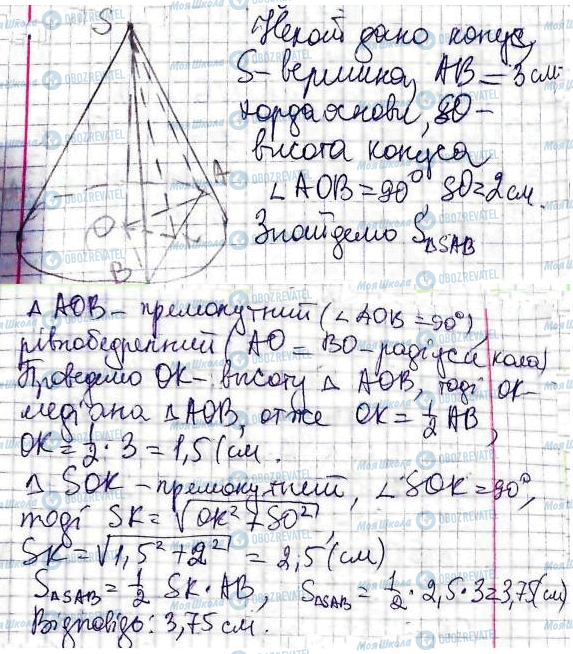 S
Нехай дано конус,
S- вершина, AB = 3 см
хорда основи, SO-
висота конуса
∠AOB = 90°, SO = 2 см.
Знайдемо S△SAB
A
O
B
△ AOB – прямокутний (∠AOB = 90°),
рівнобедрений (AO = BO - радіуси кола)
Проведемо OK - висоту △ AOB, тоді OK-
медіана △AOB, отже OK = 1/2 AB,
OK = 1/2 · 3 = 1,5 (см.
△ SOK - прямокутний, ∠SOK = 90°,
тоді SK = √(OK² + SO²),
SK = √(1,5² + 2²) = 2,5 (см)
S△SAB = 1/2 SK · AB, S△SAB = 1/2 · 2,5 · 3 = 3,75 (см)
Відповідь: 3,75 см.